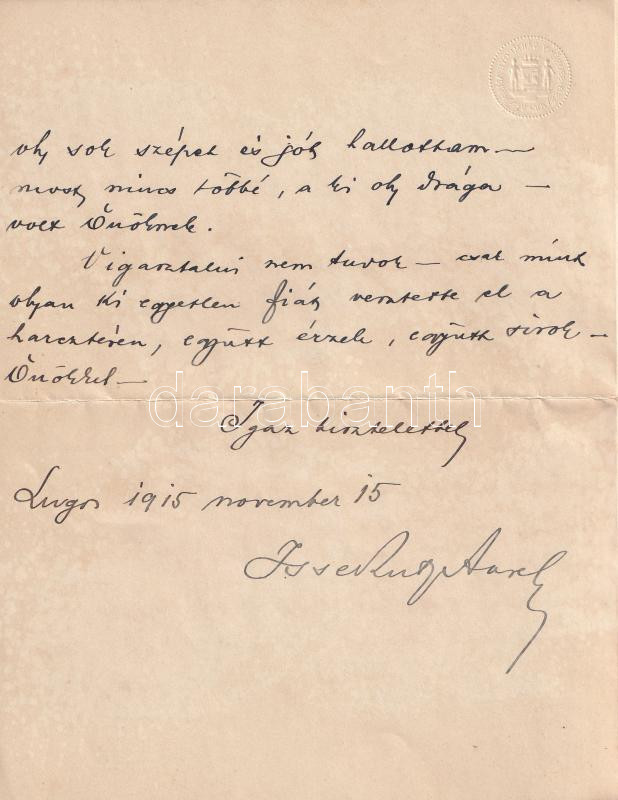 oly sok szépet és jót hallottam —
most nincs többé, a ki oly drága —
volt Önöknek.
Vigasztalni nem tudok — csak mint
olyan ki egyetlen fiát vesztette el a
harcztéren, együtt érzek, együtt sirok —
Önökkel —
darabanth
Igaz tisztelettel
Lugos 1915 november 15
Issekutz Aurel